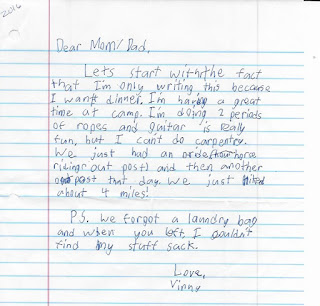 2016
Dear Mom/Dad,
Lets start with the fact
that I'm only writing this because
I want dinner. I'm having a great
time at camp. I'm doing 2 periods
of ropes and guitar is really
fun, but I can't do carpentry.
We just had an
riding out post) and then another
post that day. We just hiked
about 4 miles!
P.S. We forgot a laundry bag
and when you left I couldn't
find my stuff sack.
Love,
Vinny